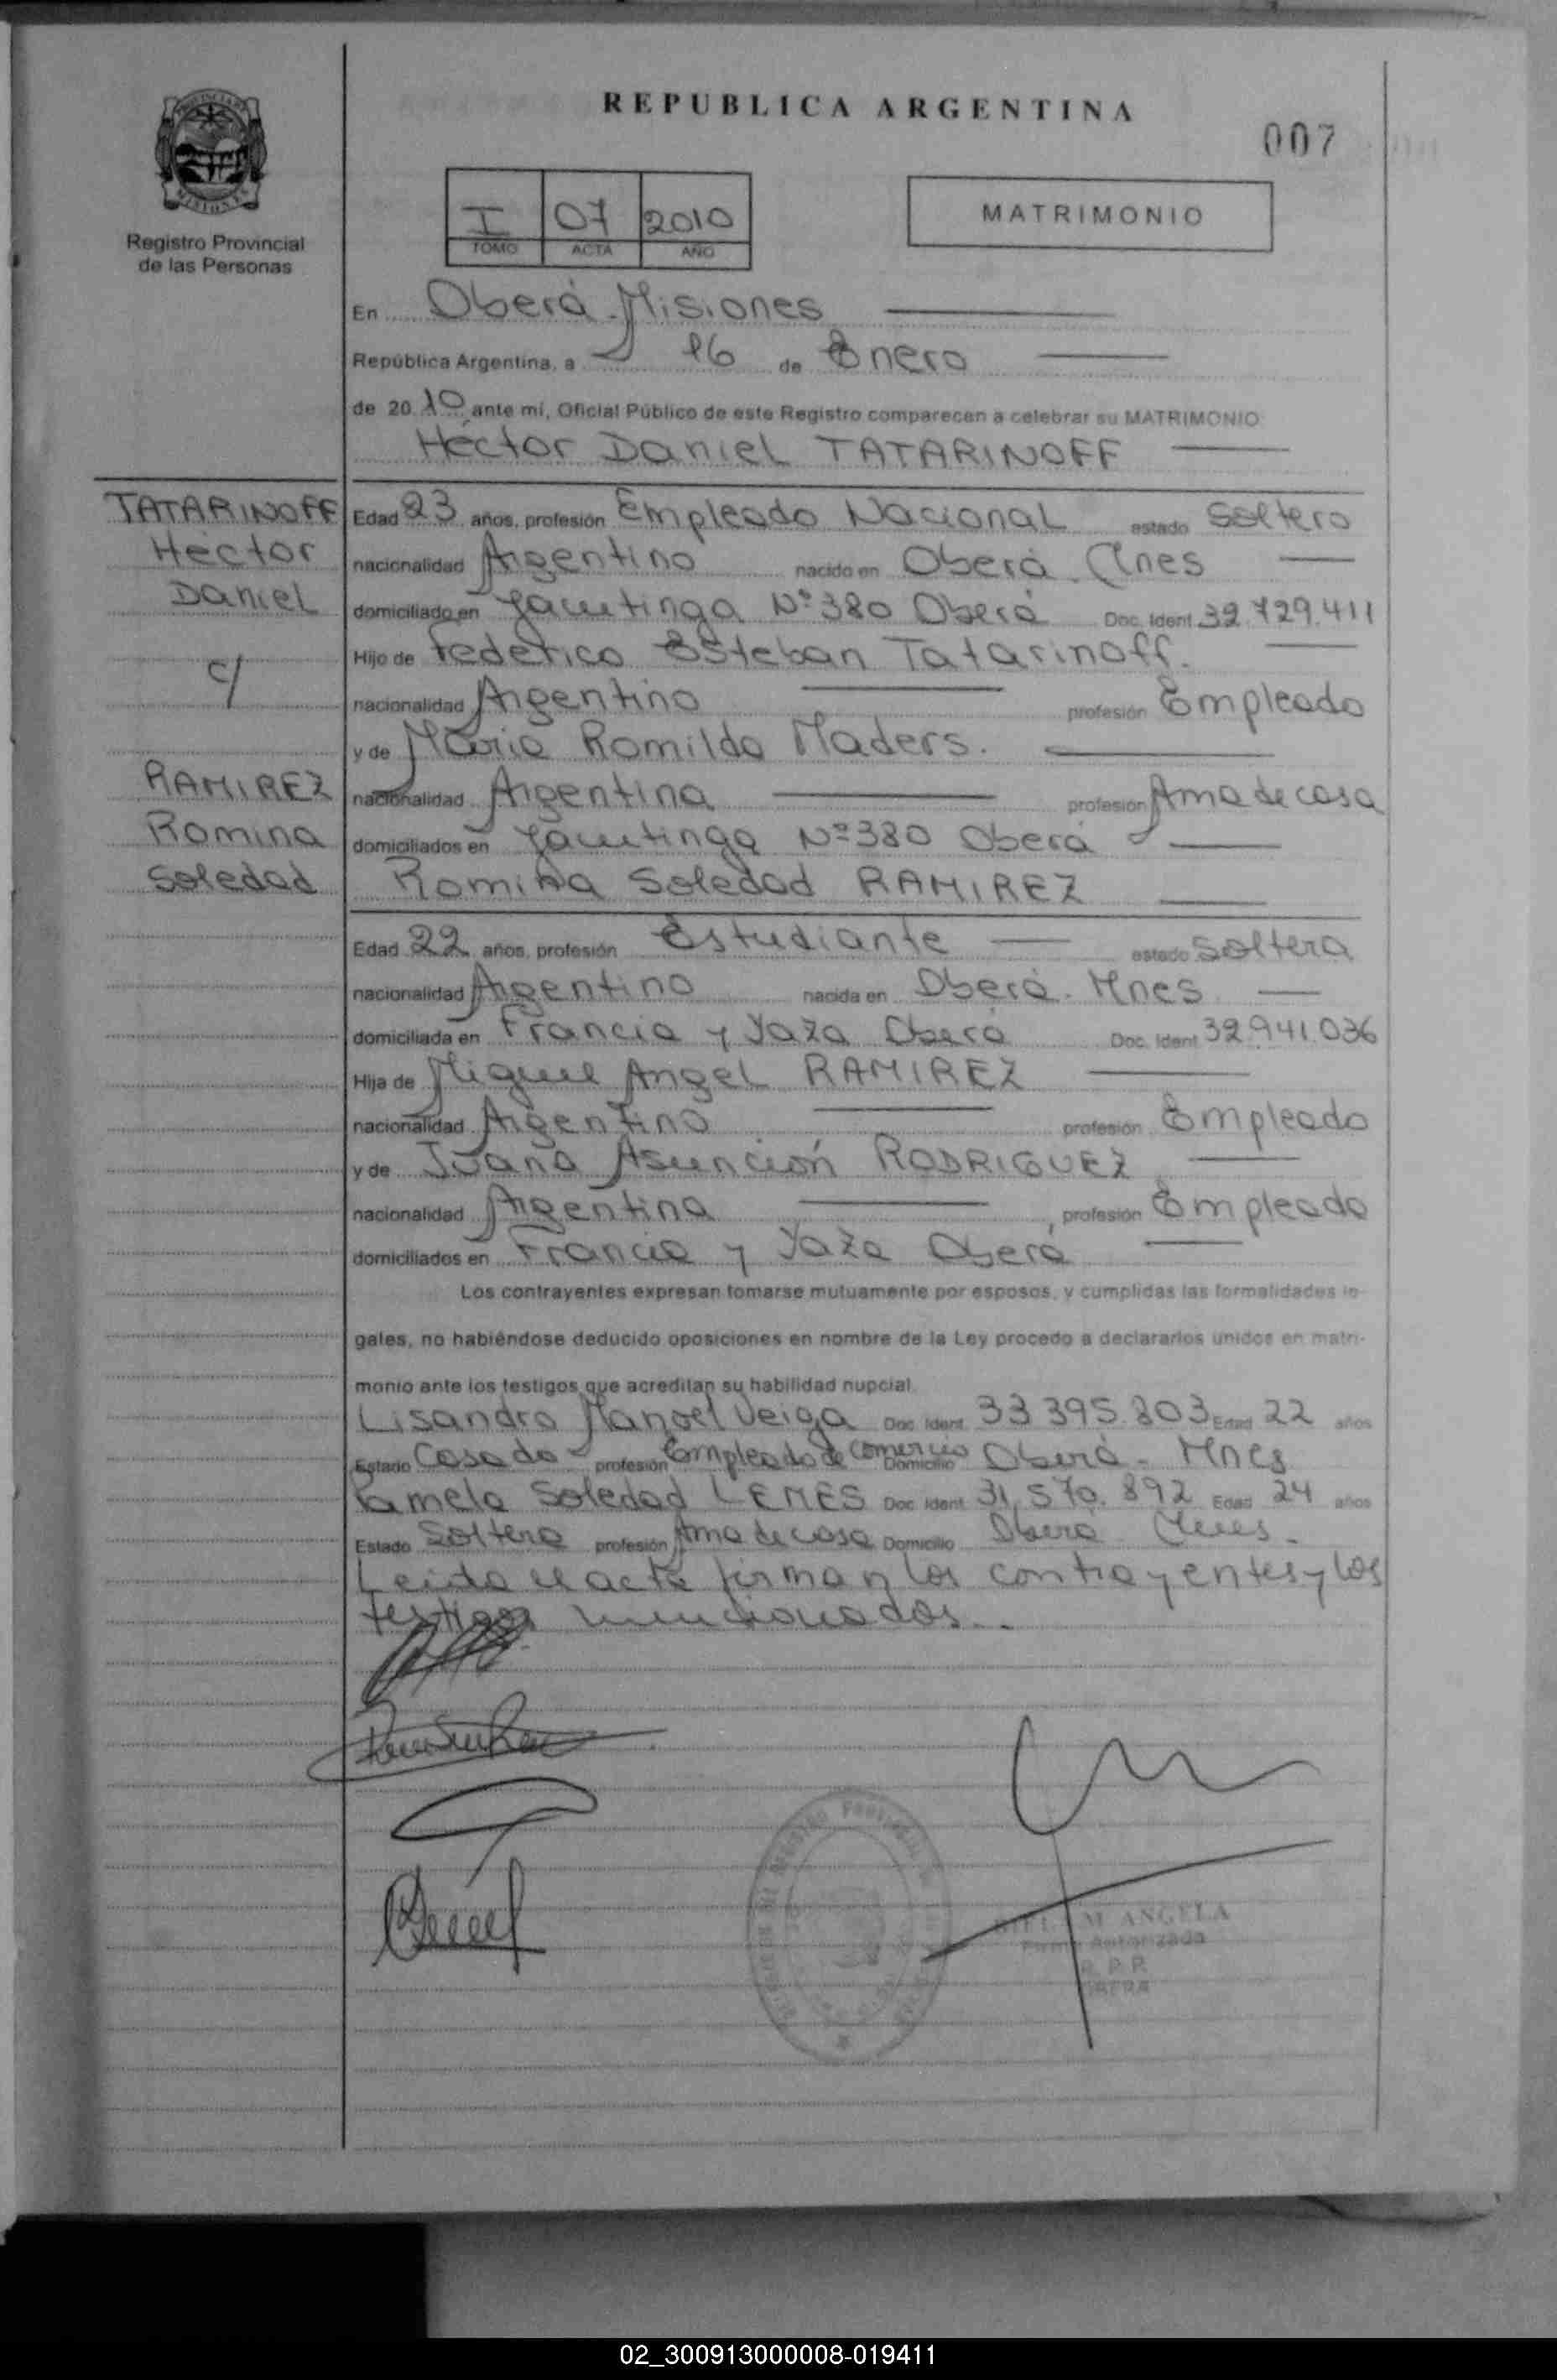 REPUBLICA ARGENTINA
007
I 07 2010
TOMO ACTA AÑO
MATRIMONIO
Registro Provincial
de las Personas
En Oberá Misiones
República Argentina, a 16 de Enero
de 2010 ante mí, Oficial Público de este Registro comparecen a celebrar su MATRIMONIO
Héctor Daniel TATARINOFF
TATARINOFF
Héctor
Daniel
c/
RAMIREZ
Romina
Soledad
Edad 23 años, profesión Empleado Nacional estado Soltero
nacionalidad Argentino nacido en Oberá Mnes
domiciliado en Yacutinga Nº 380 Oberá Doc. Ident 32.729.411
Hijo de Federico Esteban Tatarinoff.
nacionalidad Argentino profesión Empleado
y de Maria Romilda Maders.
nacionalidad Argentina profesión Ama de casa
domiciliados en Yacutinga Nº 380 Oberá
Romina Soledad RAMIREZ
Edad 22 años, profesión Estudiante estado Soltera
nacionalidad Argentina nacida en Oberá. Mnes
domiciliada en Francia y Yaza Oberá Doc. Ident 32.941.036
Hija de Miguel Angel RAMIREZ
nacionalidad Argentino profesión Empleado
y de Juana Asunción RODRIGUEZ
nacionalidad Argentina profesión Empleada
domiciliados en Francia y Yaza Oberá
Los contrayentes expresan tomarse mutuamente por esposos, y cumplidas las formalidades le-
gales, no habiéndose deducido oposiciones en nombre de la Ley procedo a declararlos unidos en matri-
monio ante los testigos que acreditan su habilidad nupcial.
Lisandro Manoel Veiga Doc. Ident. 33 395.803 Edad 22 años
Estado Casado profesión Empleado de comercio Domicilio Oberá - Mnes
Pamela Soledad LEMES Doc. Ident 31.570.892 Edad 24 años
Estado Soltera profesión Ama de casa Domicilio Oberá Mnes.
Leida el acta firman los contrayentes y los
testigos mencionados.
M. ANGELA
Firma Autorizada
02_300913000008-019411